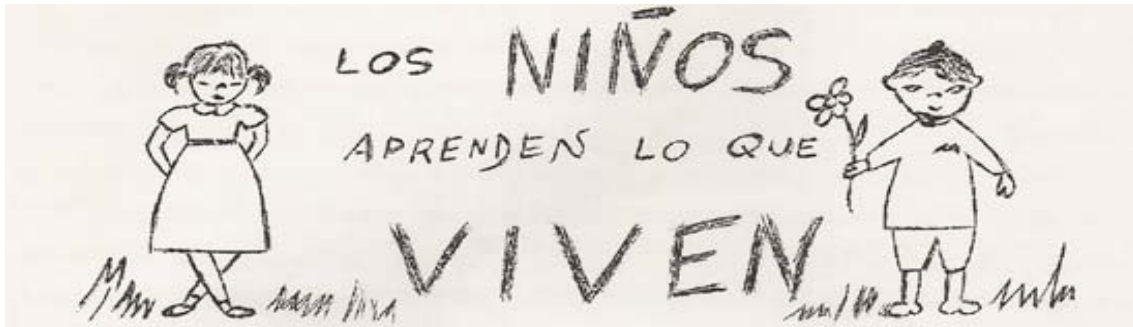 LOS NIÑOS
APRENDEN LO QUE
VIVEN